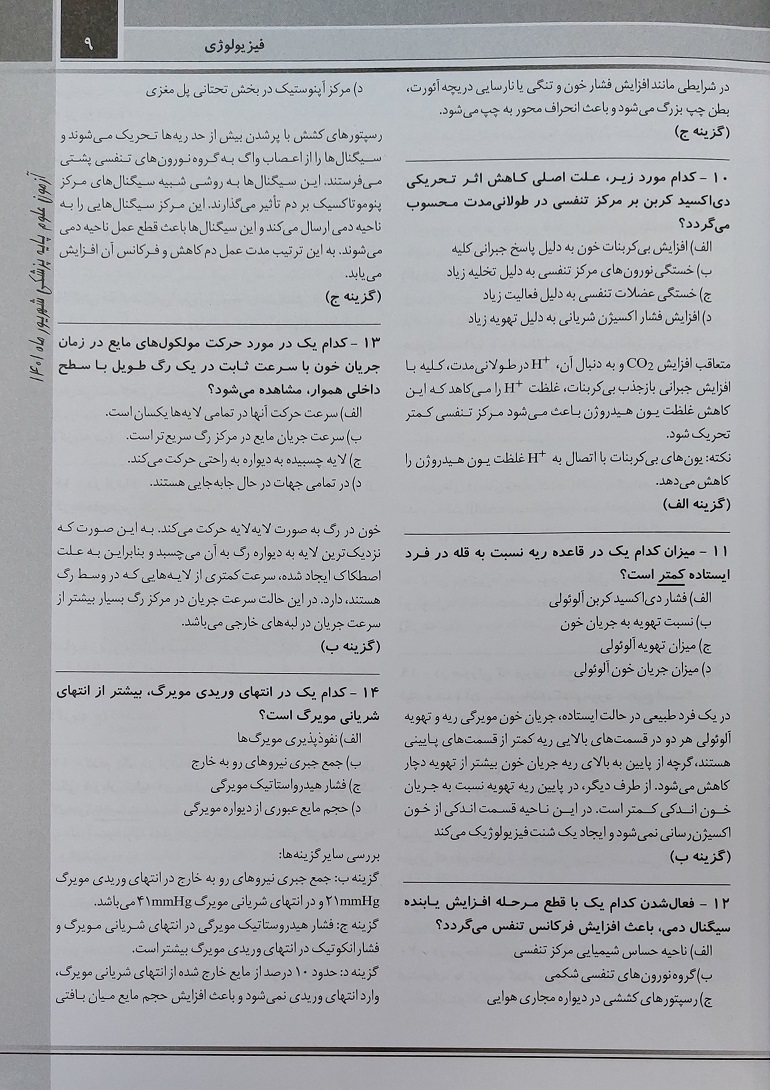 ۹
فیزیولوژی
آزمون علوم پایه پزشکی شهریور ماه ۱۴۰۱
در شرایطی مانند افزایش فشار خون و تنگی یا نارسایی دریچه آئورت،
بطن چپ بزرگ می‌شود و باعث انحراف محور به چپ می‌شود.
(گزینه ج)
۱۰ - کدام مورد زیر، علت اصلی کاهش اثر تحریکی
دی‌اکسید کربن بر مرکز تنفسی در طولانی‌مدت محسوب
می‌گردد؟
الف) افزایش بی‌کربنات خون به دلیل پاسخ جبرانی کلیه
ب) خستگی نورون‌های مرکز تنفسی به دلیل تخلیه زیاد
ج) خستگی عضلات تنفسی به دلیل فعالیت زیاد
د) افزایش فشار اکسیژن شریانی به دلیل تهویه زیاد
متعاقب افزایش CO2 و به دنبال آن، H+ در طولانی‌مدت، کلیه با
افزایش جبرانی بازجذب بی‌کربنات، غلظت H+ را می‌کاهد که این
کاهش غلظت یون هیدروژن باعث می‌شود مرکز تنفسی کمتر
تحریک شود.
نکته: یون‌های بی‌کربنات با اتصال به H+ غلظت یون هیدروژن را
کاهش می‌دهد.
(گزینه الف)
۱۱ - میزان کدام یک در قاعده ریه نسبت به قله در فرد
ایستاده کمتر است؟
الف) فشار دی‌اکسید کربن آلوئولی
ب) نسبت تهویه به جریان خون
ج) میزان تهویه آلوئولی
د) میزان جریان خون آلوئولی
در یک فرد طبیعی در حالت ایستاده، جریان خون مویرگی ریه و تهویه
آلوئولی هر دو در قسمت‌های بالایی ریه کمتر از قسمت‌های پایینی
هستند، گرچه از پایین به بالای ریه جریان خون بیشتر از تهویه دچار
کاهش می‌شود. از طرف دیگر، در پایین ریه تهویه نسبت به جریان
خون اندکی کمتر است. در این ناحیه قسمت اندکی از خون
اکسیژن‌رسانی نمی‌شود و ایجاد یک شنت فیزیولوژیک می‌کند
(گزینه ب)
۱۲ - فعال‌شدن کدام یک با قطع مرحله افزایش یابنده
سیگنال دمی، باعث افزایش فرکانس تنفس می‌گردد؟
الف) ناحیه حساس شیمیایی مرکز تنفسی
ب) گروه نورون‌های تنفسی شکمی
ج) رسپتورهای کششی در دیواره مجاری هوایی
د) مرکز آپنوستیک در بخش تحتانی پل مغزی
رسپتورهای کشش با پرشدن بیش از حد ریه‌ها تحریک می‌شوند و
سیگنال‌ها را از اعصاب واگ به گروه نورون‌های تنفسی پشتی
می‌فرستند. این سیگنال‌ها به روشی شبیه سیگنال‌های مرکز
پنوموتاکسیک بر دم تأثیر می‌گذارند. این مرکز سیگنال‌هایی را به
ناحیه دمی ارسال می‌کند و این سیگنال‌ها باعث قطع عمل ناحیه دمی
می‌شوند. به این ترتیب مدت عمل دم کاهش و فرکانس آن افزایش
می‌یابد.
(گزینه ج)
۱۳ - کدام یک در مورد حرکت مولکول‌های مایع در زمان
جریان خون با سرعت ثابت در یک رگ طویل با سطح
داخلی هموار، مشاهده می‌شود؟
الف) سرعت حرکت آنها در تمامی لایه‌ها یکسان است.
ب) سرعت جریان مایع در مرکز رگ سریع‌تر است.
ج) لایه چسبیده به دیواره به راحتی حرکت می‌کند.
د) در تمامی جهات در حال جابه‌جایی هستند.
خون در رگ به صورت لایه‌لایه حرکت می‌کند. به این صورت که
نزدیک‌ترین لایه به دیواره رگ به آن می‌چسبد و بنابراین به علت
اصطکاک ایجاد شده، سرعت کمتری از لایه‌هایی که در وسط رگ
هستند، دارد. در این حالت سرعت جریان در مرکز رگ بسیار بیشتر از
سرعت جریان در لبه‌های خارجی می‌باشد.
(گزینه ب)
۱۴ - کدام یک در انتهای وریدی مویرگ، بیشتر از انتهای
شریانی مویرگ است؟
الف) نفوذپذیری مویرگ‌ها
ب) جمع جبری نیروهای رو به خارج
ج) فشار هیدرواستاتیک مویرگی
د) حجم مایع عبوری از دیواره مویرگی
بررسی سایر گزینه‌ها:
گزینه ب: جمع جبری نیروهای رو به خارج در انتهای وریدی مویرگ
۲۱mmHg و در انتهای شریانی مویرگ ۴۱mmHg می‌باشد.
گزینه ج: فشار هیدروستاتیک مویرگی در انتهای شریانی مویرگ و
فشار انکوتیک در انتهای وریدی مویرگ بیشتر است.
گزینه د: حدود ۱۰ درصد از مایع خارج شده از انتهای شریانی مویرگ،
وارد انتهای وریدی نمی‌شود و باعث افزایش حجم مایع میان بافتی